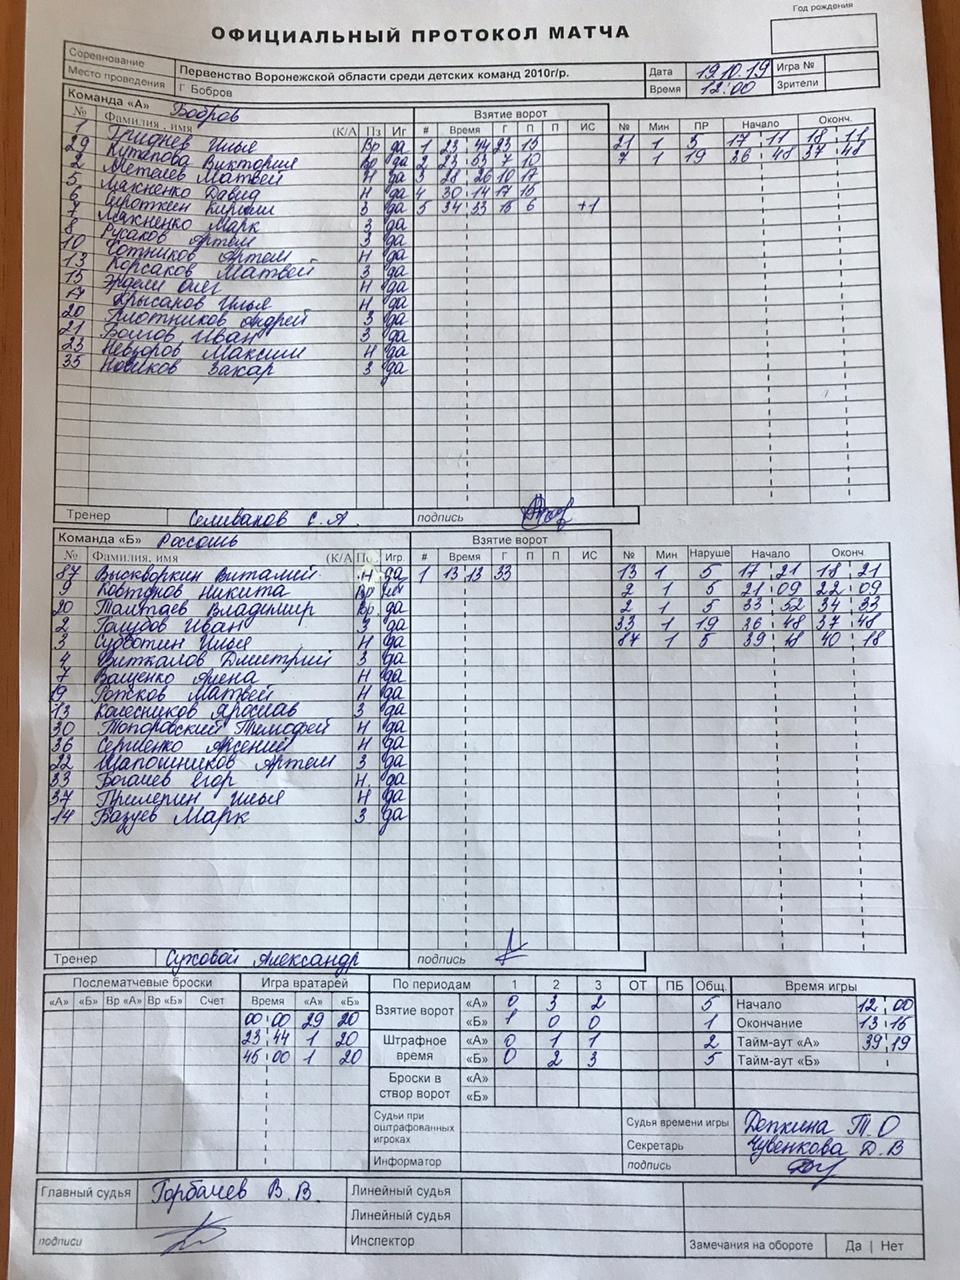 Год рождения
ОФИЦИАЛЬНЫЙ ПРОТОКОЛ МАТЧА
Соревнование Первенство Воронежской области среди детских команд 2010г/р. Дата 19.10.19 Игра №
Место проведения Г Бобров Время 12:00 Зрители
Команда «А» Бобров Взятие ворот
№ Фамилия, имя (К/А Пз Иг # Время Г П П ИС № Мин ПР Начало Оконч.
1 Гриднев Илья Вр да 1 23 44 23 15 21 1 5 17 11 18 11
29 Кутепова Виктория Вр да 2 27 53 7 10 7 1 19 36 48 37 48
2 Метелев Матвей Н да 3 28 26 10 17
5 Макненко Давид Н да 4 30 14 17 15
6 Сироткин Кирилл З да 5 34 33 15 6 +1
7 Макненко Марк З да
8 Русаков Артём З да
10 Сотников Артём Н да
13 Корсаков Матвей З да
15 Эрдели Олег Н да
17 Крысанов Илья Н да
20 Плотников Андрей З да
21 Болгов Иван З да
23 Невзоров Максим Н да
35 Новиков Захар З да
Тренер Селиванов С. А. подпись
Команда «Б» Россошь Взятие ворот
№ Фамилия, имя (К/А По. Игр. # Время Г П П ИС № Мин Наруше Начало Оконч.
87 Высковркин Виталий Н да 1 13 13 33 13 1 5 17 21 18 21
9 Никита Вр 2 1 5 21 09 22 09
20 Владимир Вр. да 2 1 5 33 52 34 33
2 Голубов Иван З да 33 1 19 36 48 37 48
3 Субботин Илья Н да 87 1 5 39 18 40 18
4 Виткалов Дмитрий З да
7 Ващенко Алена Н да
19 Матвей Н да
13 Колесников Ярослав З да
30 Топоровский Тимофей Н да
36 Сергиенко Арсений Н да
22 Шапошников Артем З да
33 Богачев Егор Н. да
37 Прилепин Илья Н да
14 Базуев Марк З да
Тренер Суховой Александр подпись
Послематчевые броски Игра вратарей По периодам 1 2 3 ОТ ПБ Общ. Время игры
«А» «Б» Вр «А» Вр «Б» Счет Время «А» «Б» Взятие ворот «А» 0 3 2 5 Начало 12 00
00 00 29 20 «Б» 1 0 0 1 Окончание 13 15
23 44 1 20 Штрафное время «А» 0 1 1 2 Тайм-аут «А» 39 19
45 00 1 20 «Б» 0 2 3 5 Тайм-аут «Б»
Броски в створ ворот «А»
«Б»
Судьи при оштрафованных игроках Судья времени игры Депкина Т. О
Секретарь Чувенкова Д. В
Информатор подпись
Главный судья Горбачев В. В. Линейный судья
Линейный судья
подписи Инспектор Замечания на обороте Да | Нет